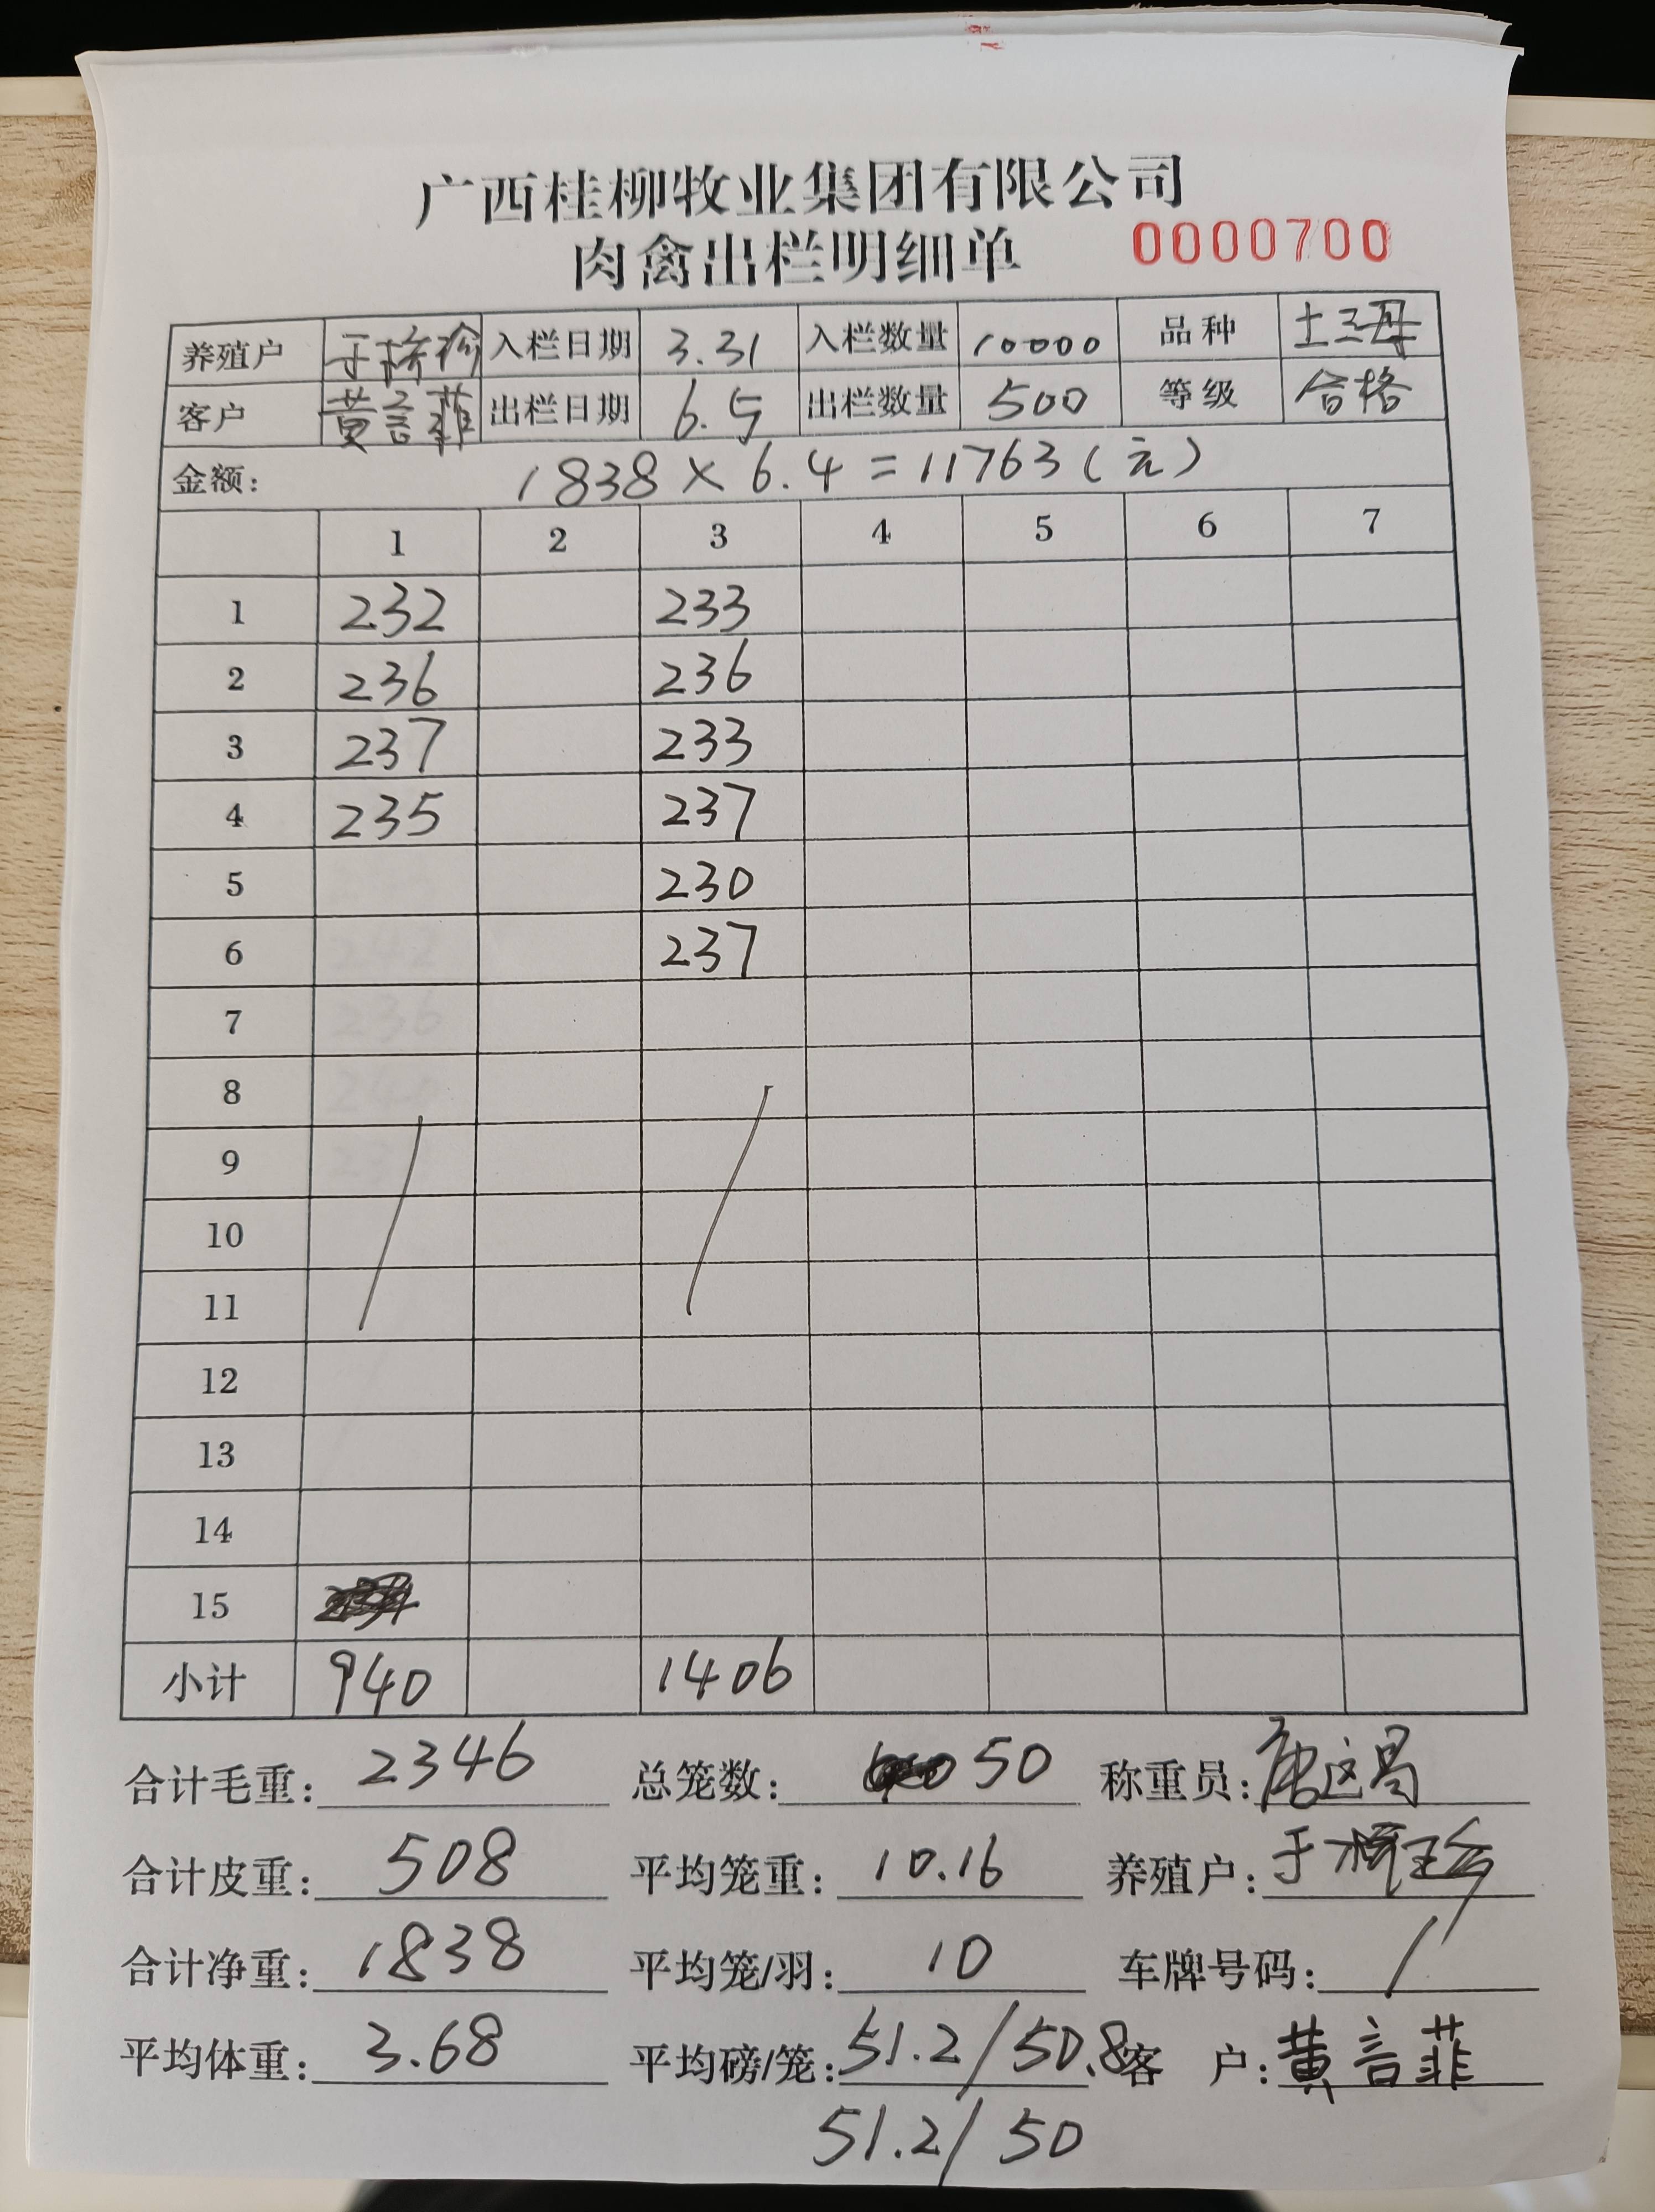 广西桂柳牧业集团有限公司
肉禽出栏明细单 0000700
养殖户 于 入栏日期 3.31 入栏数量 10000 品种 土三母
客户 黄言菲 出栏日期 6.5 出栏数量 500 等级 合格
金额: 1838×6.4=11763(元)
1 2 3 4 5 6 7
1 232 233
2 236 236
3 237 233
4 235 237
5 230
6 237
7
8
9
10
11
12
13
14
15
小计 940 1406
合计毛重: 2346 总笼数: 50 称重员:
合计皮重: 508 平均笼重: 10.16 养殖户: 于
合计净重: 1838 平均笼/羽: 10 车牌号码: /
平均体重: 3.68 平均磅/笼: 51.2/50.8 客 户: 黄言菲
51.2/50